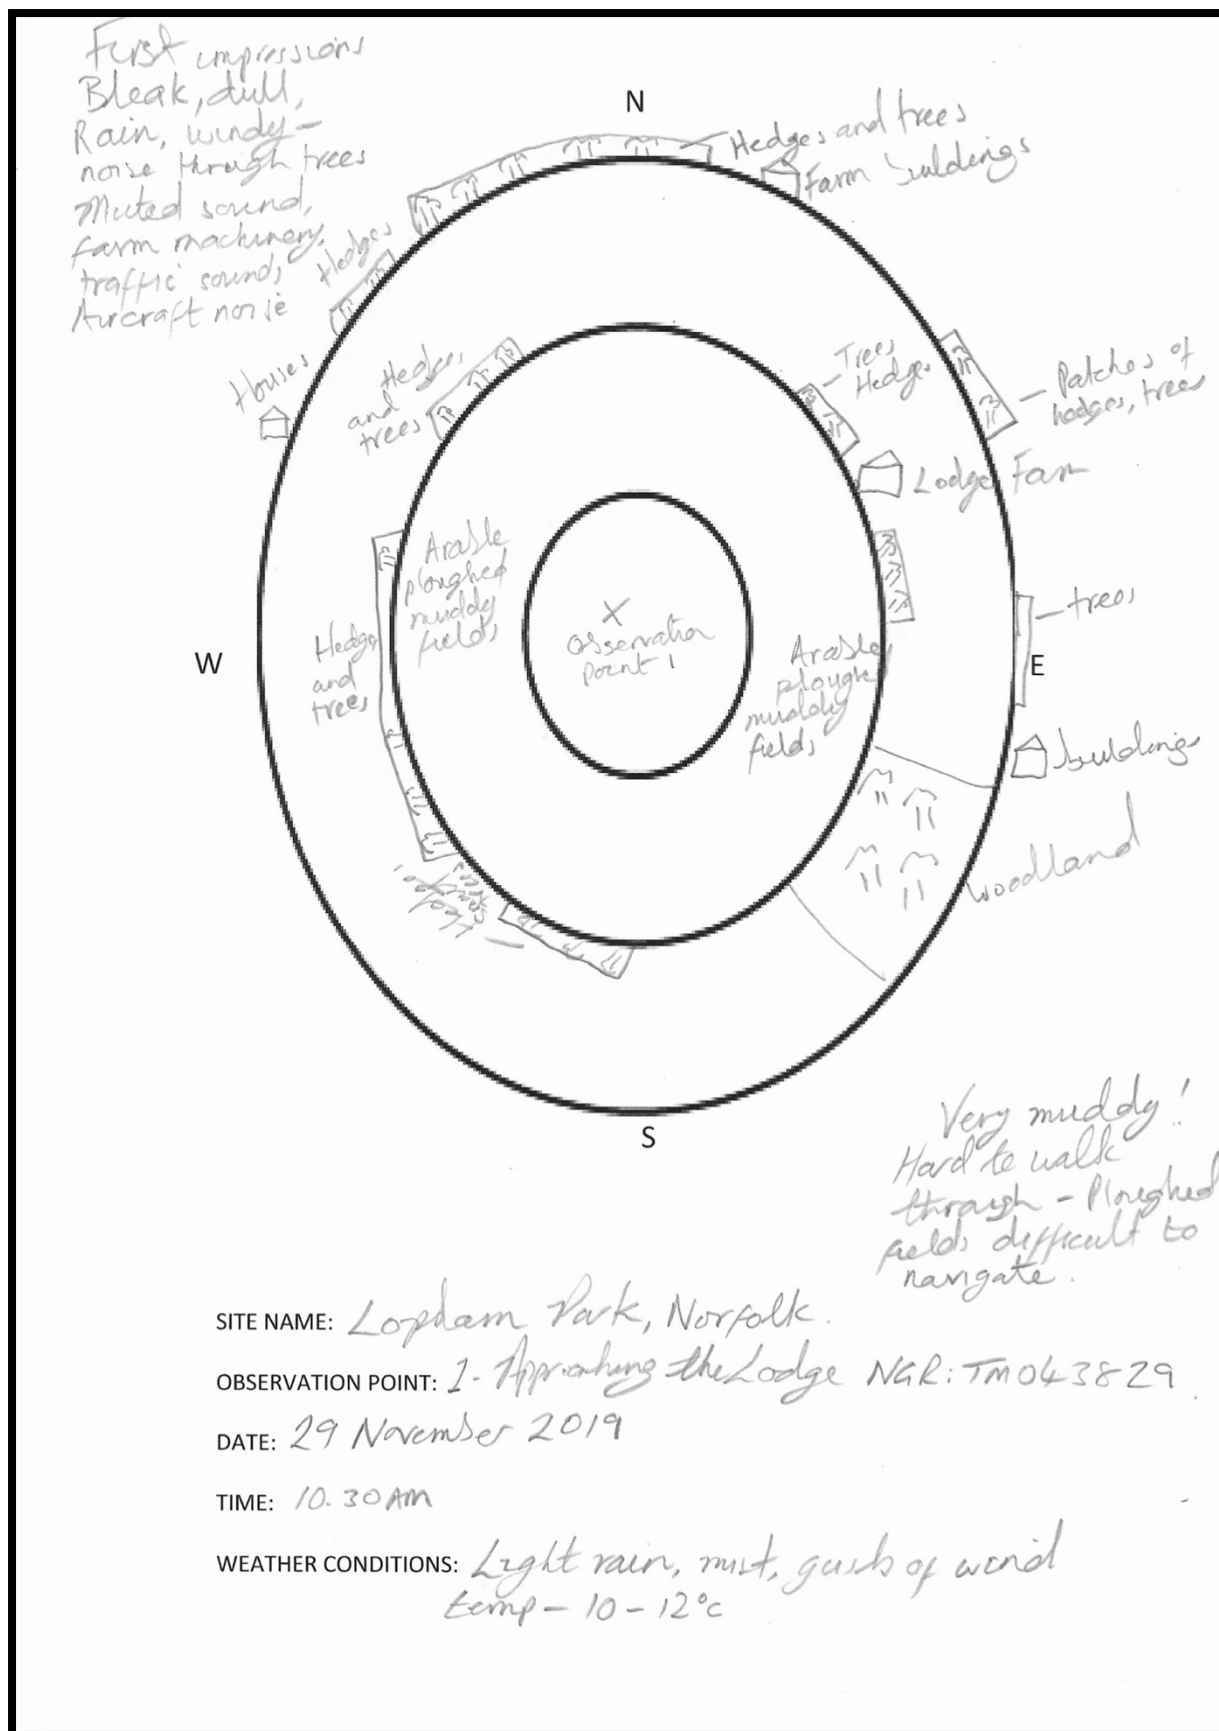 First impressions
Bleak, dull,
Rain, windy –
noise through trees
Muted sound,
farm machinery,
traffic sounds
Aircraft noise
N
Hedges and trees
Farm buildings
Hedges
Houses
Hedges
and
trees
Trees
Hedges
– Patches of
hedges, trees
Lodge Farm
Arable
ploughed
muddy
fields
X
Observation
Point 1
W
Hedges
and
trees
Arable
ploughed
muddy
fields
– trees
E
buildings
woodland
Hedges,
trees
S
Very muddy!
Hard to walk
through – Ploughed
fields difficult to
navigate.
SITE NAME: Lopham Park, Norfolk.
OBSERVATION POINT: 1 - Approaching the Lodge NGR: TM043829
DATE: 29 November 2019
TIME: 10.30AM
WEATHER CONDITIONS: Light rain, mist, gusts of wind
temp – 10 – 12°c